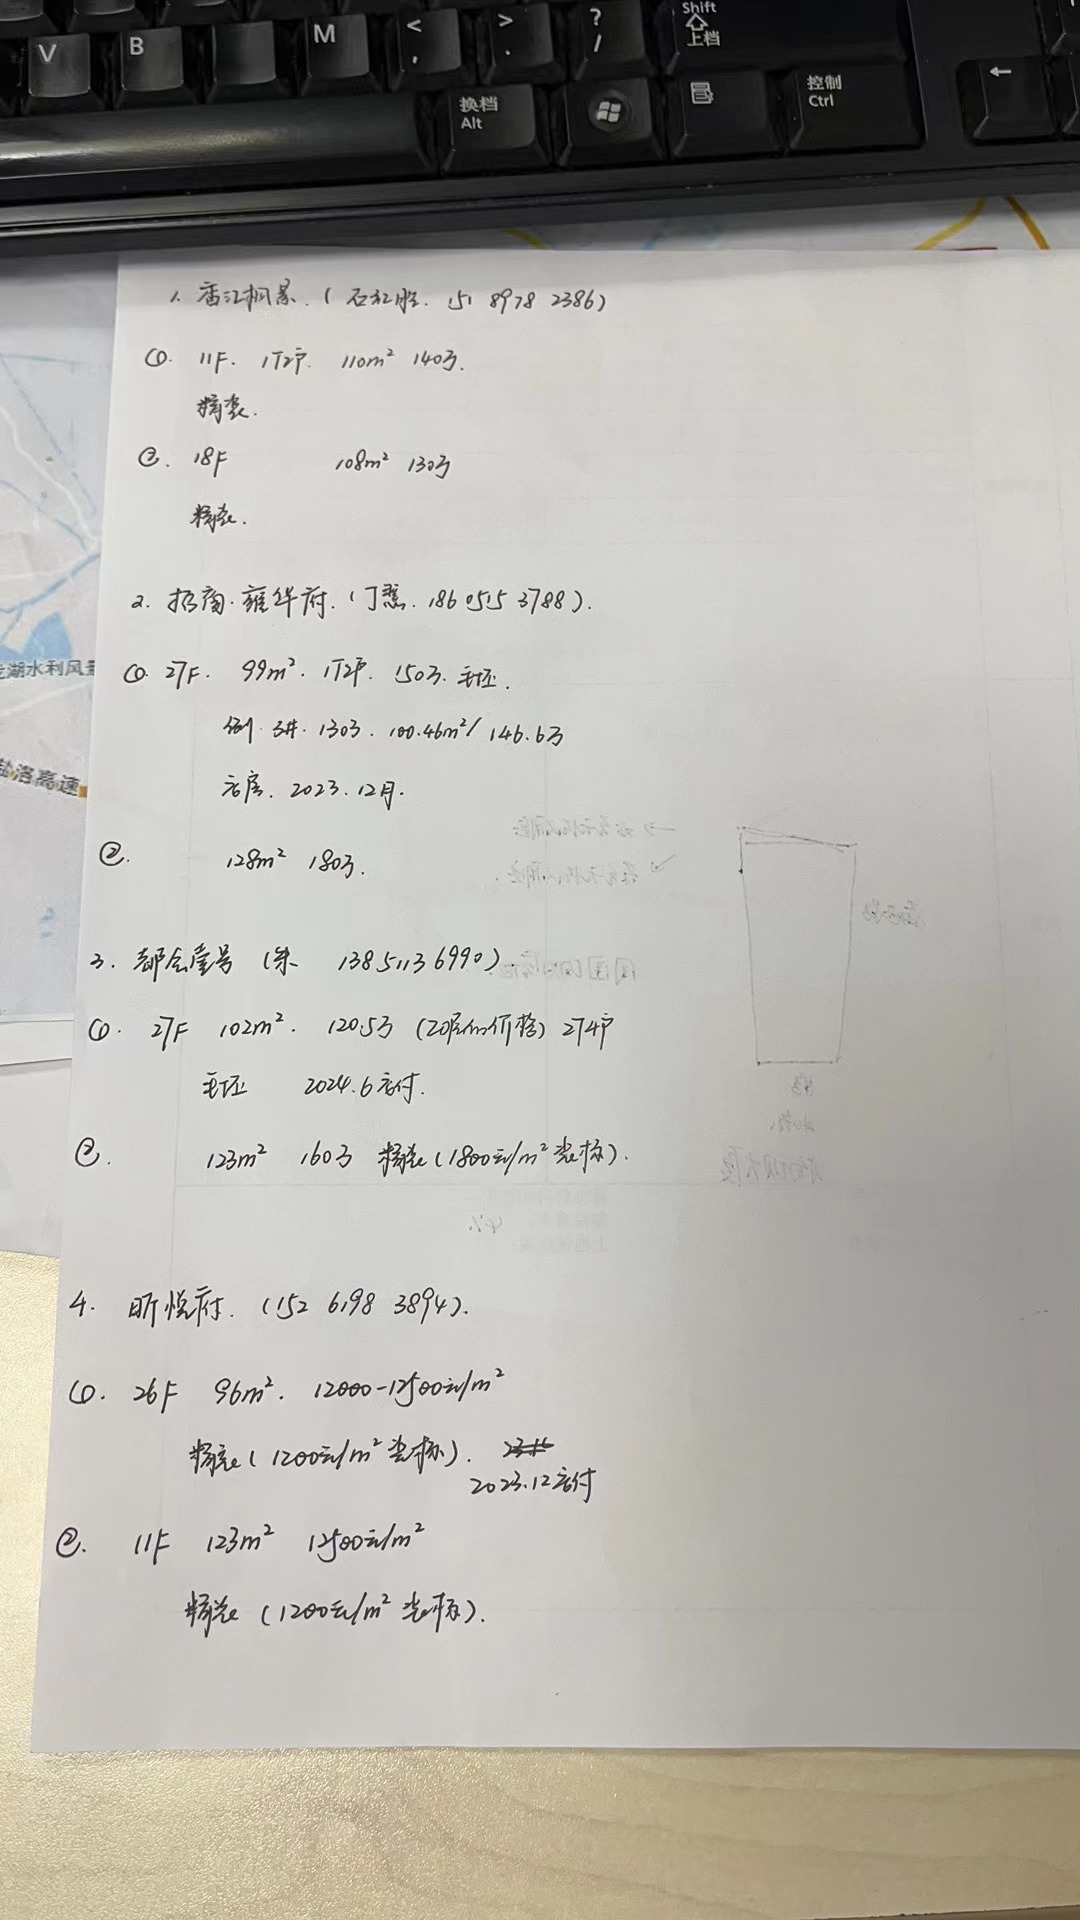 V B M < , > . ? / Shift 上档
换档 Alt 控制 Ctrl ←
龙湖水利风景
盐洛高速
1. 香江枫景.(石红胜. 151 8978 2386)
①. 11F. 1T2户. 110m² 140万.
精装.
②. 18F 108m² 130万
精装.
2. 招商·雍华府.(丁慧. 186 0515 3788).
①. 27F. 99m². 1T2户. 150万. 毛坯.
例. 3#. 1303. 100.46m²/146.6万
交房. 2023.12月.
②. 128m² 180万.
3. 都会壹号 (朱 138 5113 6990).
①. 27F 102m². 120.5万 (20层的价格) 2T4户
毛坯 2024.6交付.
②. 123m² 160万 精装(1800元/m²装标).
4. 昕悦府. (152 6198 3894).
①. 26F 96m². 12000-12500元/m²
精装(1200元/m²装标).
2023.12交付
②. 11F 123m² 12500元/m²
精装 (1200元/m²装标).